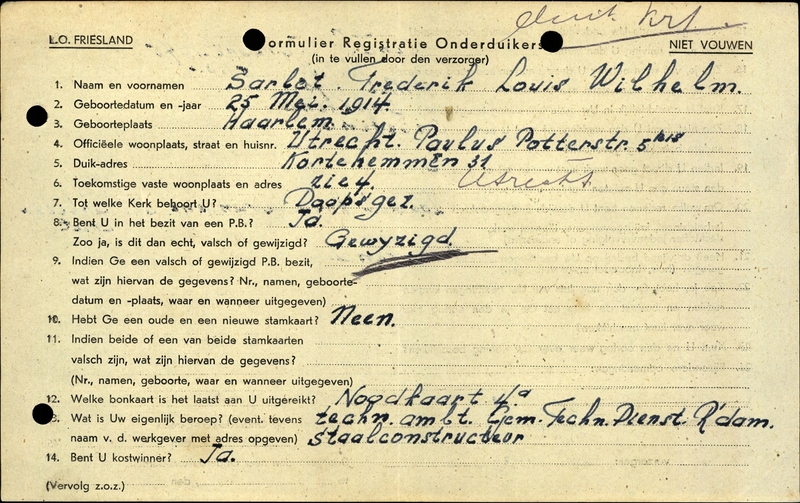 L.O. FRIESLAND
Formulier Registratie Onderduikers
NIET VOUWEN
(in te vullen door den verzorger)
1. Naam en voornamen Sarlot. Frederik Louis Wilhelm.
2. Geboortedatum en -jaar 25 Mei. 1914.
3. Geboorteplaats Haarlem.
4. Officiëele woonplaats, straat en huisnr. Utrecht. Paulus Potterstr. 5 bis
5. Duik-adres Kortehemmen 31
6. Toekomstige vaste woonplaats en adres zie 4. Utrecht
7. Tot welke Kerk behoort U? Doopsgez.
8. Bent U in het bezit van een P.B.? Ja.
Zoo ja, is dit dan echt, valsch of gewijzigd? Gewyzigd.
9. Indien Ge een valsch of gewijzigd P.B. bezit,
wat zijn hiervan de gegevens? Nr., namen, geboorte-
datum en -plaats, waar en wanneer uitgegeven)
10. Hebt Ge een oude en een nieuwe stamkaart? Neen.
11. Indien beide of een van beide stamkaarten
valsch zijn, wat zijn hiervan de gegevens?
(Nr., namen, geboorte, waar en wanneer uitgegeven)
12. Welke bonkaart is het laatst aan U uitgereikt? Noodkaart 4a
13. Wat is Uw eigenlijk beroep? (event. tevens techn. ambt. Gem. Techn. Dienst. R'dam.
naam v. d. werkgever met adres opgeven) staalconstructeur
14. Bent U kostwinner? Ja.
(Vervolg z.o.z.)